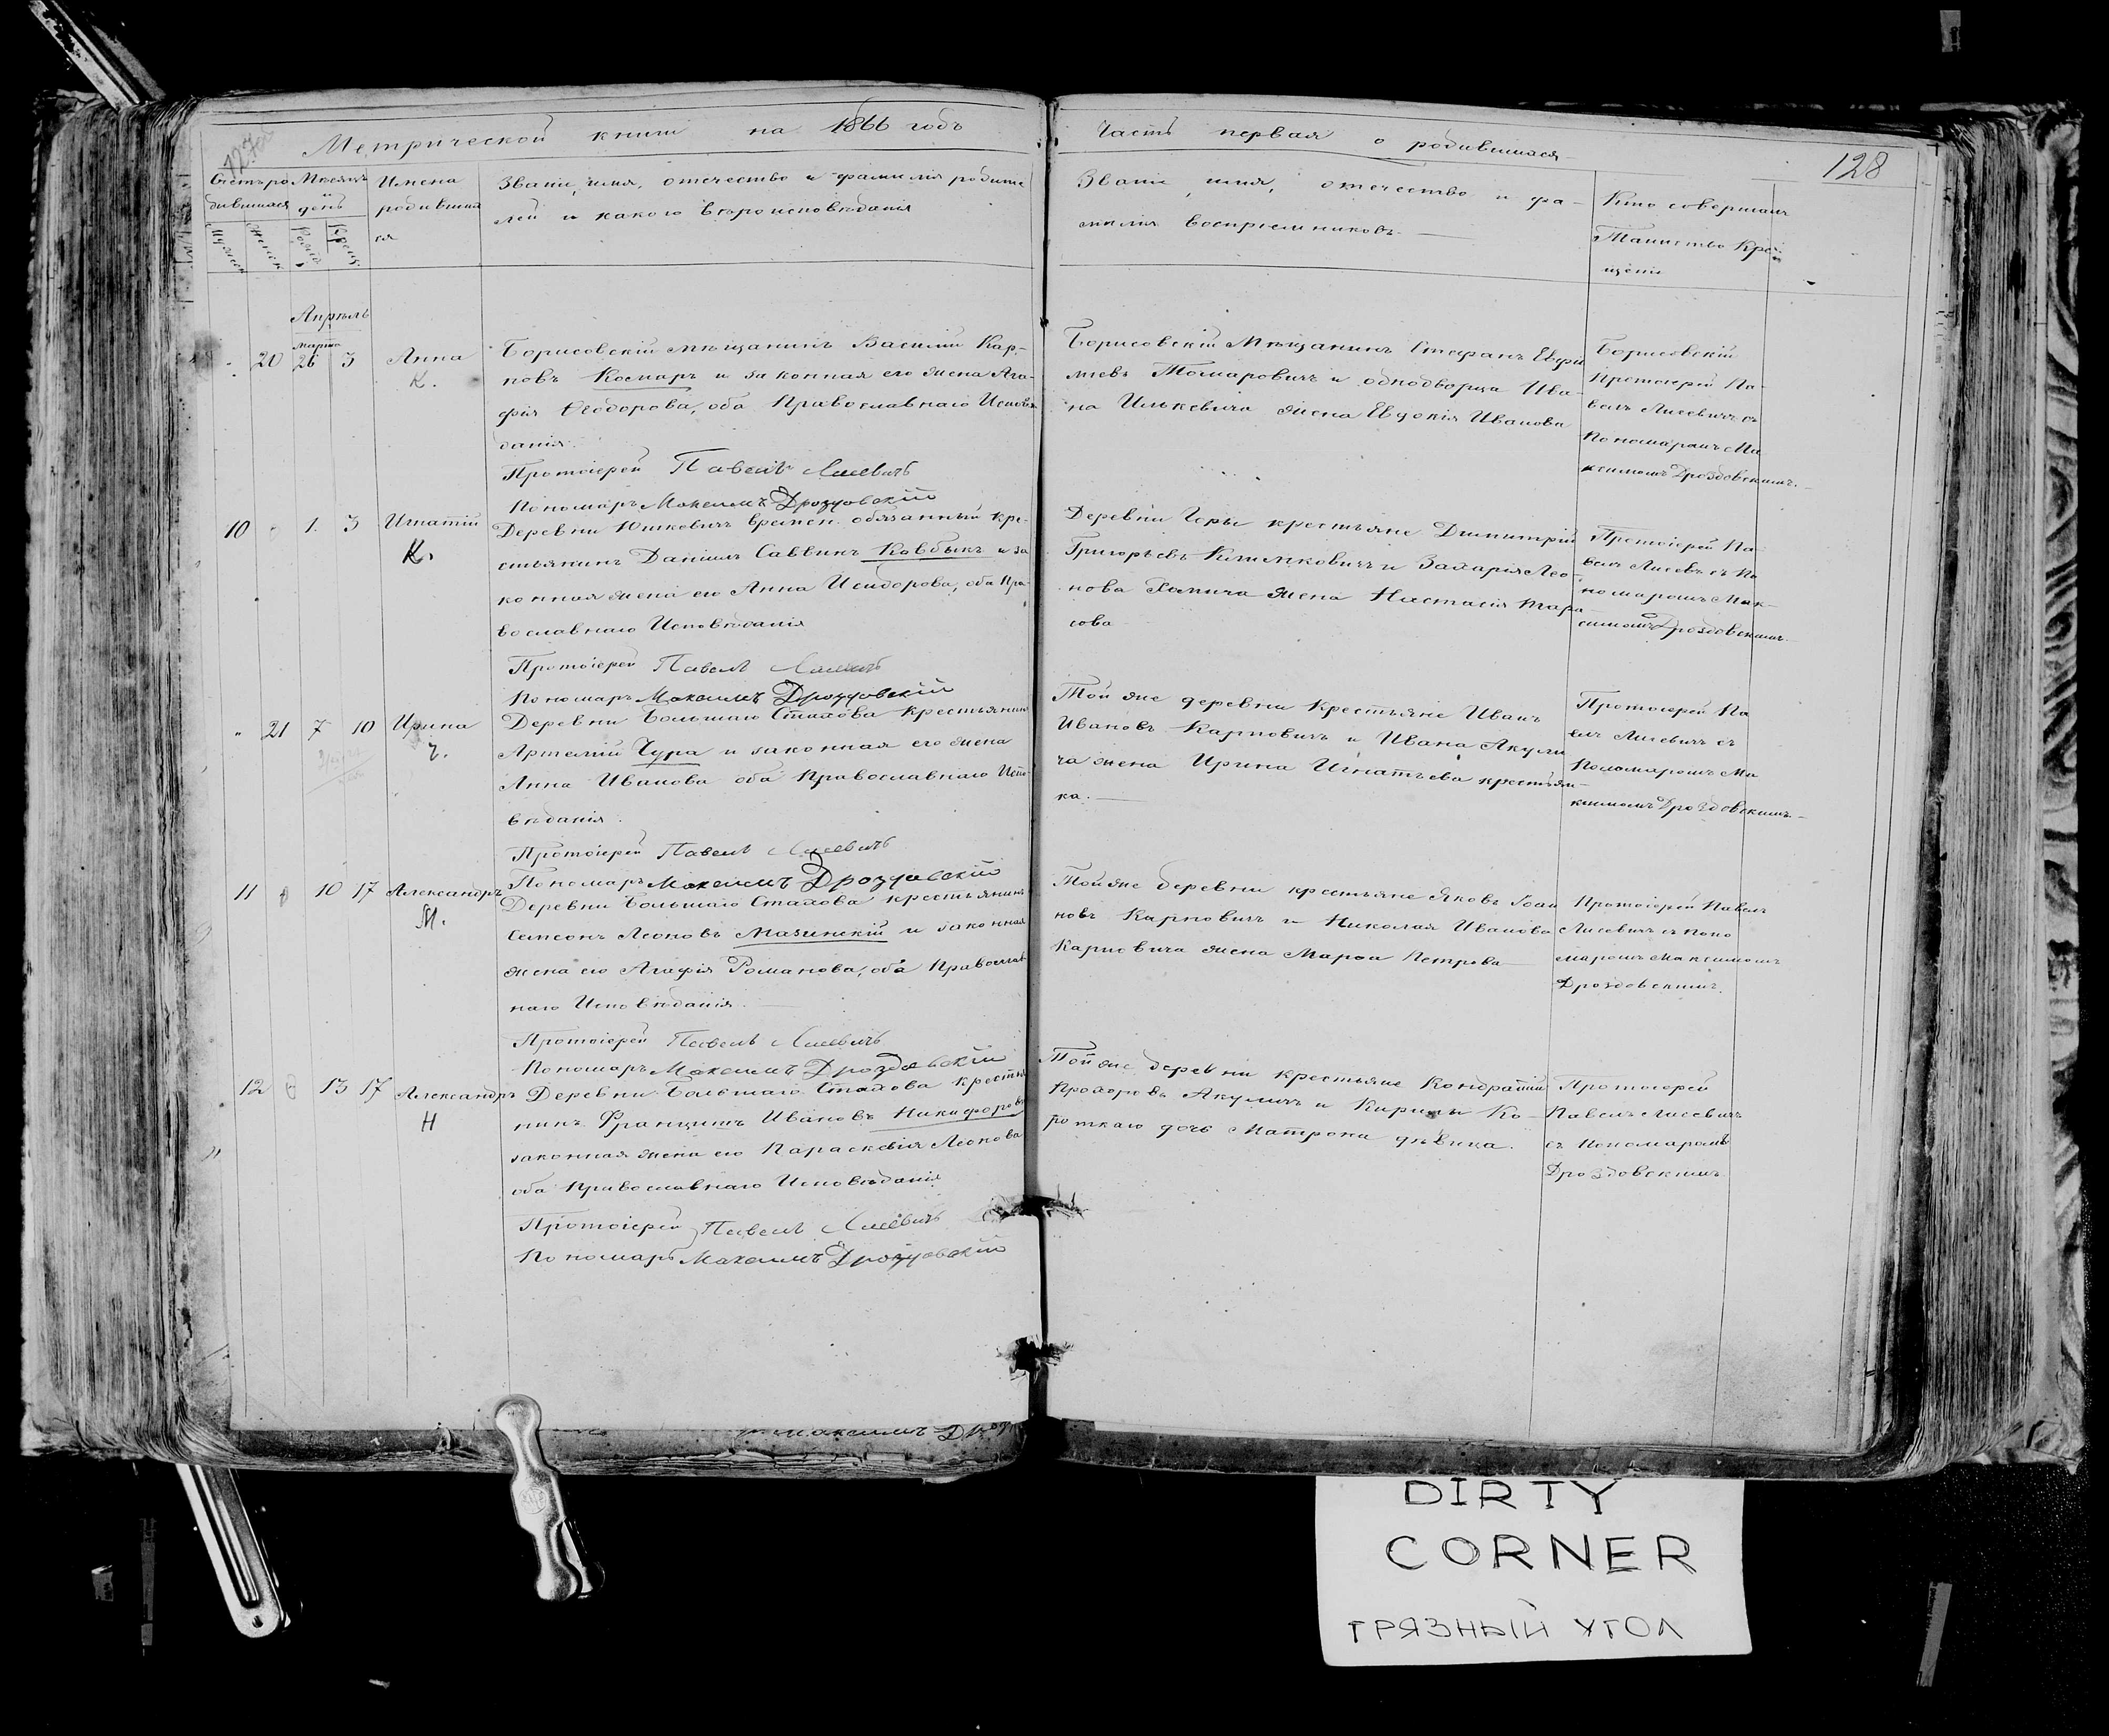 Метрической книги на 1866 годъ
Часть первая о родившихся
128
Мѣсяцъ
день
Имена
родивших
ся
Званіе, имя, отечество и фамилія родите
лей и какого вѣроисповѣданія
Званіе, имя, отечество и фа-
милія воспріемниковъ
Кто совершалъ
Таинство Кре-
щенія
Апрѣль
Марта
20 26 3 Анна
К.
Борисовскій мѣщанинъ Василій Кар-
повъ Космаръ и законная его жена Ага-
фія Ѳеодорова, оба Православнаго Исповѣ
данія
Протоіерей Павелъ Лисевичъ
Пономарь Максимъ Дроздовскій
Борисовскій Мѣщанинъ Стефанъ Евфи
міевъ Томаровичъ и однодворца Ива-
на Илькевича жена Евдокія Иванова
Борисовскій
Протоіерей Па-
велъ Лисевичъ съ
Пономаремъ Ма
ксимомъ Дроздовскимъ.
10 1 3 Игнатій
К.
Деревни Юшковичъ времен. обязанный кре-
стьянинъ Даніилъ Саввинъ Ковбыкъ и за
конная жена его Анна Исидорова, оба Пра-
вославнаго Исповѣданія
Протоіерей Павелъ Лисевичъ
Пономарь Максимъ Дроздовскій
Деревни крестьяне Димитрій
Григорьевъ Климковичъ и Захарія Лео-
нова жена Настасія Тара
сова
Протоіерей Па-
велъ Лисевъ съ По
номаромъ Мак-
симомъ Дроздовскимъ.
21 7 10 Ирина
Ч.
Деревни Большаго Стахова крестьянин
Артемій Чура и законная его жена
Анна Иванова оба Православнаго Испо
вѣданія.
Протоіерей Павелъ Лисевичъ
Пономарь Максимъ Дроздовскій
Той же деревни Крестьяне Иванъ
Ивановъ Карповичъ и Ивана Акули
ча жена Ирина Игнатьева крестьян-
ка.
Протоіерей Па
елъ Лисевичъ съ
Пономаромъ Ма
ксимомъ Дроздовскимъ.
11 10 17 Александръ
М.
Деревни Большаго Стахова крестьянинъ
Семсонъ Леоновъ Мачинскій и законная
жена его Агафія Романова, оба Православ
наго Исповѣданія.
Протоіерей Павелъ Лисевичъ
Пономарь Максимъ Дроздовскій
Той же деревни крестьяне Яковъ Іоан
новъ Карповичъ и Николая Иванова
Карповича жена Марѳа Петрова
Протоіерей Павелъ
Лисевичъ съ Поно
маромъ Максимомъ
Дроздовскимъ.
12 13 17 Александръ
Н
Деревни Большаго Стахова Крестья
нинъ Францишъ Ивановъ Никифоров
законная жена его Параскевія Леонова
оба Православнаго Исповѣданія
Протоіерей Павелъ Лисевичъ
Пономарь Максимъ Дроздовскій
Той же деревни крестьяне Кондратій
Прохоровъ Акуличъ и Кирилы Ко-
роткаго дочь Матрона дѣвица.
Протоіерей
Павелъ Лисевичъ
съ Пономаромъ
Дроздовскимъ
DIRTY
CORNER
ГРЯЗНЫЙ УГОЛ